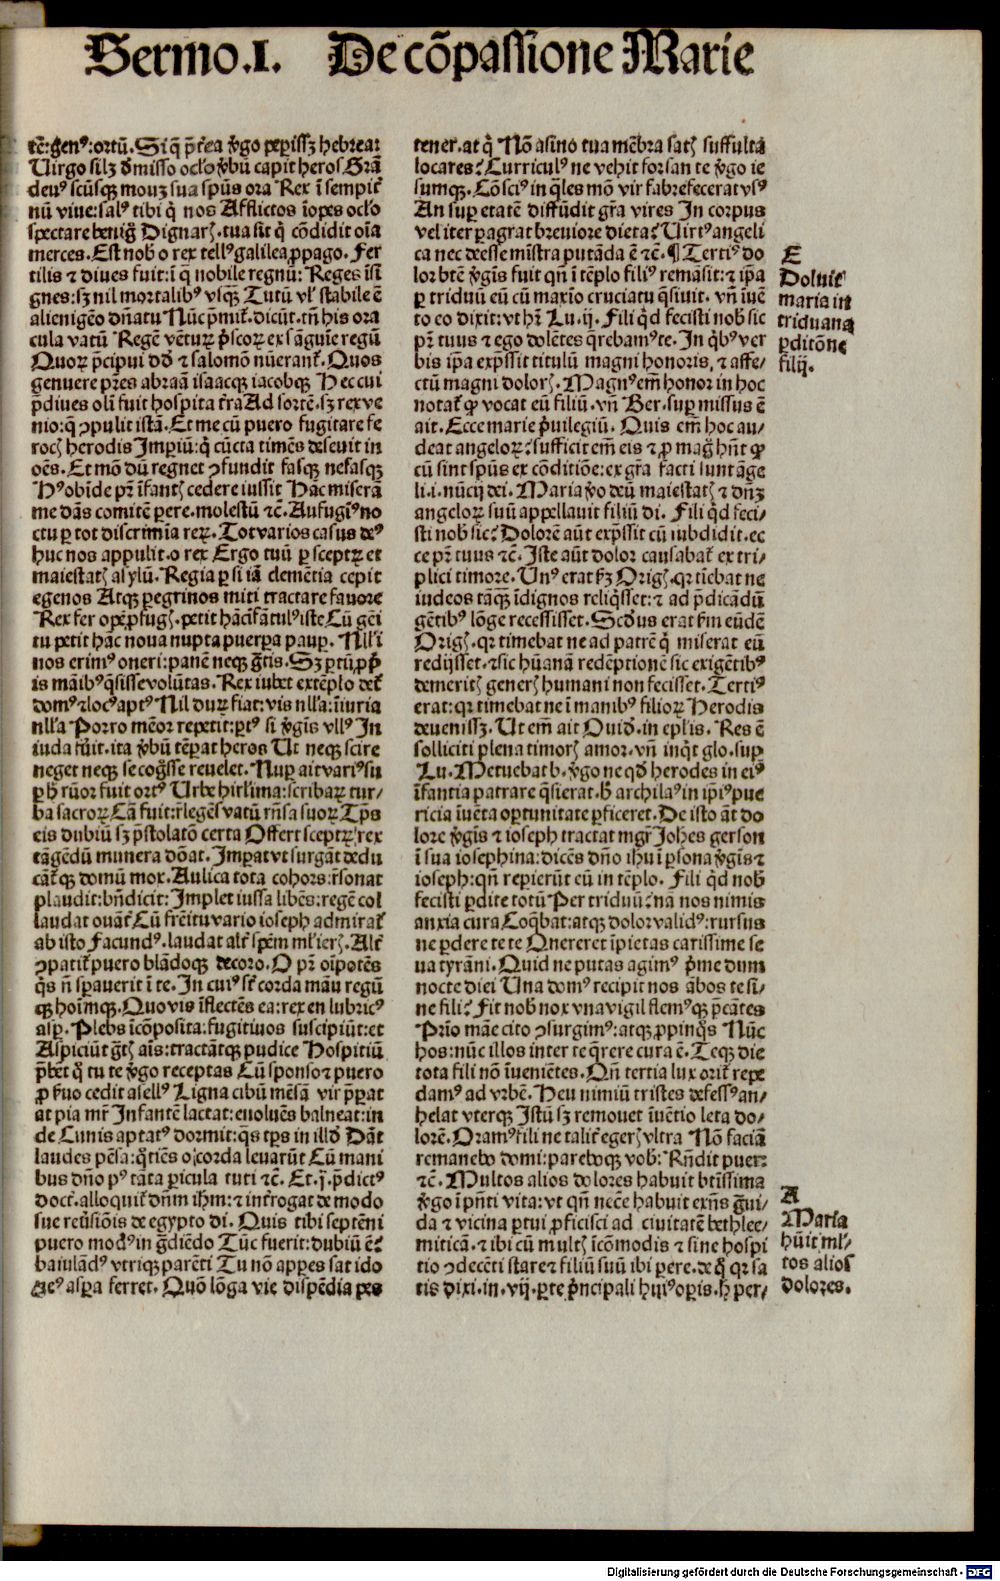 Sermo.I. De cõpassione Marie
tẽ:genꝰ:ortũ. Si q̃ p̃t̃ea v̾go peperissꝫ hebrear
Uirgo silꝫ d̾misso oc̾lo v̾bũ capit heros Grã
deuꝰ scũsqꝫ mouꝫ sua spũs ora Rex ĩ sempit̾
nũ viue:salꝰ tibi q̃ nos Afflictos ĩopes oc̾lo
spectare benig̃ Dignarꝭ. tua sit q̃ cõdidit oĩa
merces. Est nob̾ o rex tellꝰ galilea ꝓpago. Fer
tilis ⁊ diues fuit:ĩ q̃ nobile regnũ: Reges isr̃
gnes:sꝫ nil mortalibꝰ vsqꝫ Tutũ vl̾ stabile ẽ
alienigẽo dñatu Nũc p̃mit̾. dicũt. tñ his ora
cula vatũ Regẽ vẽturꝫ p̃scorꝫ ex sãguĩe regũ
Quorꝫ p̃cipui dd̾ ⁊ salomõ nũerant̾. Quos
genuere pr̃es abraã isaacqꝫ iacobqꝫ Hec cui
p̃diues oli fuit hospita tr̃a Ad sortẽ. sꝫ rex ve
nio:q̃ ꝯpulit istã. Et me cũ puero fugitare fe
rocꝭ herodis Imꝑiũ:q̃ cũcta timẽs deseuit in
oẽs. Et mõ dũ regnet ꝯfundit fasqꝫ nefasqꝫ
Hꝰobĩde pr̃ ĩfantꝭ cedere iussit Hac miserã
me dãs comitẽ ꝑere. molestũ ⁊c̃. Aufugiꝰ no
ctu ꝑ tot discrimĩa rerꝫ. Tot varios casus deꝰ
huc nos appulit. o rex Ergo tuũ ꝑ sceptrꝫ et
maiestatꝭ asylũ. Regia ꝑ si iã clemẽtia cepit
egenos Atqꝫ ꝑegrinos miti tractare fauore
Rex fer opẽ ꝓfugꝭ. petit hãc ĩfãtulꝰ iste Cũ gẽi
tu petit hãc noua nupta puerꝑa pauꝑ. Nil ĩ
nos erimꝰ oneri:panẽ neqꝫ g̃tis. Sꝫ ꝑtũ ꝓp̃
is mãibꝰ q̃sisse volũtas. Rex iubet extẽplo det̾
domꝰ ⁊ locꝰ aptꝰ Nil durꝫ fiat: vis nll̾a: iniuria
nll̾a Porro mẽor repetit:ꝑtꝰ si v̾gĩs vllꝰ In
iuda fũit. ita v̾bũ tẽꝑat heros Ut neqꝫ scire
neget neqꝫ se cog̃sse reuelet. Nuꝑ ait variꝰ su
ꝑ h̾ rũor fuit ortꝰ Urbe hirl̃ima:scribarꝫ tur-
ba sacrorꝫ Cã fuit: r̃legẽs vatũ rñsa suorꝫ Tp̃s
eis dubiũ sꝫ p̃stolatõ certa Offert sceptrꝫ rex
tãgẽdũ munera dõat. Imꝑat vt surgãt dedu
cãt̾qꝫ domũ mox. Aulica tota cohors: r̃sonat
plaudit:bñdicit: Implet iussa libẽs:regẽ col
laudat ouãt̾ Cũ frẽitu vario ioseph admirat̾
ab isto Facundꝰ. laudat alt̾ spẽm ml̾ierꝭ. Alt̾
ꝯpatit̾ puero blãdoqꝫ decoro. O pr̃ oĩpotẽs
q̃s ñ sꝑauerit ĩ te. In cuiꝰ sũt corda mãu regũ
qꝫ hoĩmqꝫ. Quouis ĩflectẽs ea:rex en lubricꝰ
asꝑ. Plebs ĩcõposita:fugitiuos suscipiũt:et
Aspiciũt g̃tꝭ aĩs:tractãtqꝫ pudice Hospitiũ
p̃bet q̃ tu te v̾go receptas Cũ sponso ⁊ puero
ꝓ f̃uo cedit asellꝰ Ligna cibũ mẽsã vir p̃ꝑat
at pia mr̃ Infantẽ lactat:euoluẽs balneat:in
de Cunis aptatꝰ dormit:q̃s tꝑs in illd̾ Dãt
laudes pẽsa:q̃tiẽs o corda leuarũt Cũ mani
bus dño pꝰ tãta ꝑicula tuti ⁊c̃. Et.j. p̃dictꝰ
doct̾.alloquit̾ dñm ihm̃: ⁊ int̾rogat de modo
sue reũsiõis de egypto di. Quis tibi septẽni
puero modꝰ in g̃diẽdo Tũc fuerit:dubiũ ẽ:
baiulãdꝰ vtriqꝫ parẽti Tu nõ appes sat ido
neꝰ asꝑa ferret. Quõ lõga vie dispẽdia pes
tener. at q̃ Nõ asino tua mẽbra satꝭ suffulta
locares? Curriculꝰ ne vehit forsan te v̾go ie
sumqꝫ. Cõsciꝰ in q̃les mõ vir fabrefecerat vsꝰ
An suꝑ etatẽ diffũdit gr̃a vires In corpus
vel iter ꝑagrat breuiore dieta? Uirtꝰ angeli
ca nec deesse mĩstra putãda ẽ ⁊c̃. ¶ Tertiꝰ do
lor btẽ v̾gĩs fuit qñ ĩ tẽplo filiꝰ remãsit: ⁊ ip̃a
ꝑ triduũ eũ cũ maxĩo cruciatu q̃siuit. vñ ĩuẽ
to eo dixit: vt hr̃ Lu.ij. Fili q̃d fecisti nob̾ sic
pr̃ tuus ⁊ ego dolẽtes q̃rebamꝰte. In q̃bꝰ ver
bis ip̃a exp̃ssit titulũ magni honoris, ⁊ affe-
ctũ magni dolorꝭ. Magnꝰ em̃ honor in hoc
notat̾ ꝙ vocat eũ filiũ. vñ Ber. suꝑ missus ẽ
ait. Ecce marie p̃uilegiũ. Quis em̃ hoc au-
deat angelorꝫ? sufficit em̃ eis ⁊ ꝓ mag̃ hñt ꝙ
cũ sint spũs ex cõditiõe: ex gr̃a facti sunt ãge
li.i. nũcij dei. Maria v̾o deũ maiestatꝭ ⁊ dñꝫ
angelorꝫ suũ appellauit filiũ di. Fili q̃d feci-
sti nob̾ sic? Dolorẽ aũt exp̃ssit cũ subdidit. ec
ce pr̃ tuus ⁊c̃. Iste aũt dolor causabat̾ ex tri-
plici timore. Unꝰ erat f̃ꝫ Origꝭ. qr timebat ne
iudeos tãqꝫ ĩdignos reliq̃sset: ⁊ ad p̃dicãdũ
gẽtibꝰ lõge recessisset. Scd̾us erat f̃m eũdẽ
Origꝭ. qr timebat ne ad patrẽ q̃ miserat eũ
redijsset. ⁊sic hũanã redẽptionẽ sic exigẽtibꝰ
demeritꝭ generꝭ humani non fecisset. Tertiꝰ
erat: qr timebat ne ĩ manibꝰ filiorꝫ Herodis
deuenissꝫ. Ut em̃ ait Ouid̾. in epl̃is. Res ẽ
solliciti plena timorꝭ amor. vñ inq̃t glo. suꝑ
Lu. Metuebat b. v̾go ne qd̾ herodes in eiꝰ
ĩfantia patrare q̃sierat. h̾ archilaꝰ in ip̃iꝰ pue
ricia ĩuẽta oꝑtunitate ꝑficeret. De isto ãt do
lore v̾gĩs ⁊ ioseph tractat mgr̃ Joh̃es gerson
ĩ sua iosephina:dicẽs dño ihũ ĩ ꝑsona v̾gĩs ⁊
ioseph: qñ reꝑierũt eũ in tẽplo. Fili q̃d nob̾
fecisti ꝑdite totũ Per triduũ? nã nos nimis
anxia cura Coq̃bat:atqꝫ dolor validꝰ:rursus
ne ꝑdere te te Quereret ĩpietas carissime se
ua tyrãni. Quid ne putas agimꝰ p̃me dum
nocte diei Una domꝰ recipit nos ãbos te si-
ne fili? Fit nob̾ nox vna vigil flemꝰqꝫ p̃cãtes
Prĩo mãe cito ꝯsurgimꝰ:atqꝫ ꝓpinq̃s Nũc
hos:nũc illos inter te q̃rere cura ẽ. Teqꝫ die
tota fili nõ ĩuenẽtes. Qñ tertia lux orit̾ repe
damꝰ ad vrbẽ. Heu nimiũ tristes defessꝰ an-
helat vterqꝫ Istũ sꝫ remouet ĩuẽtio leta do-
lorẽ. Oramꝰ fili ne talit̾ egerꝭ vltra Nõ faciã
remanebo domi:pareboqꝫ vob̾: Rñdit puer:
⁊c̃. Multos alios dolores habuit btĩssima
v̾go ĩ p̃nti vita: vt qñ necẽe habuit exñs g̃ui-
da ⁊ vicina ꝑtui ꝓficisci ad ciuitatẽ bethlee-
miticã. ⁊ ibi cũ multꝭ ĩcõmodis ⁊ sine hospi
tio ꝯdecẽti stare ⁊ filiũ suũ ibi ꝑere. de q̃ qr sa
tis dixi.in.vij. ꝑte p̃ncipali hujꝰ oꝑis. h̾ per-
E
Doluit
maria in
triduana
ꝑditõne
filij.
A
Maria
hũit ml̾-
tos alios
dolores.
Digitalisierung gefördert durch die Deutsche Forschungsgemeinschaft - DFG